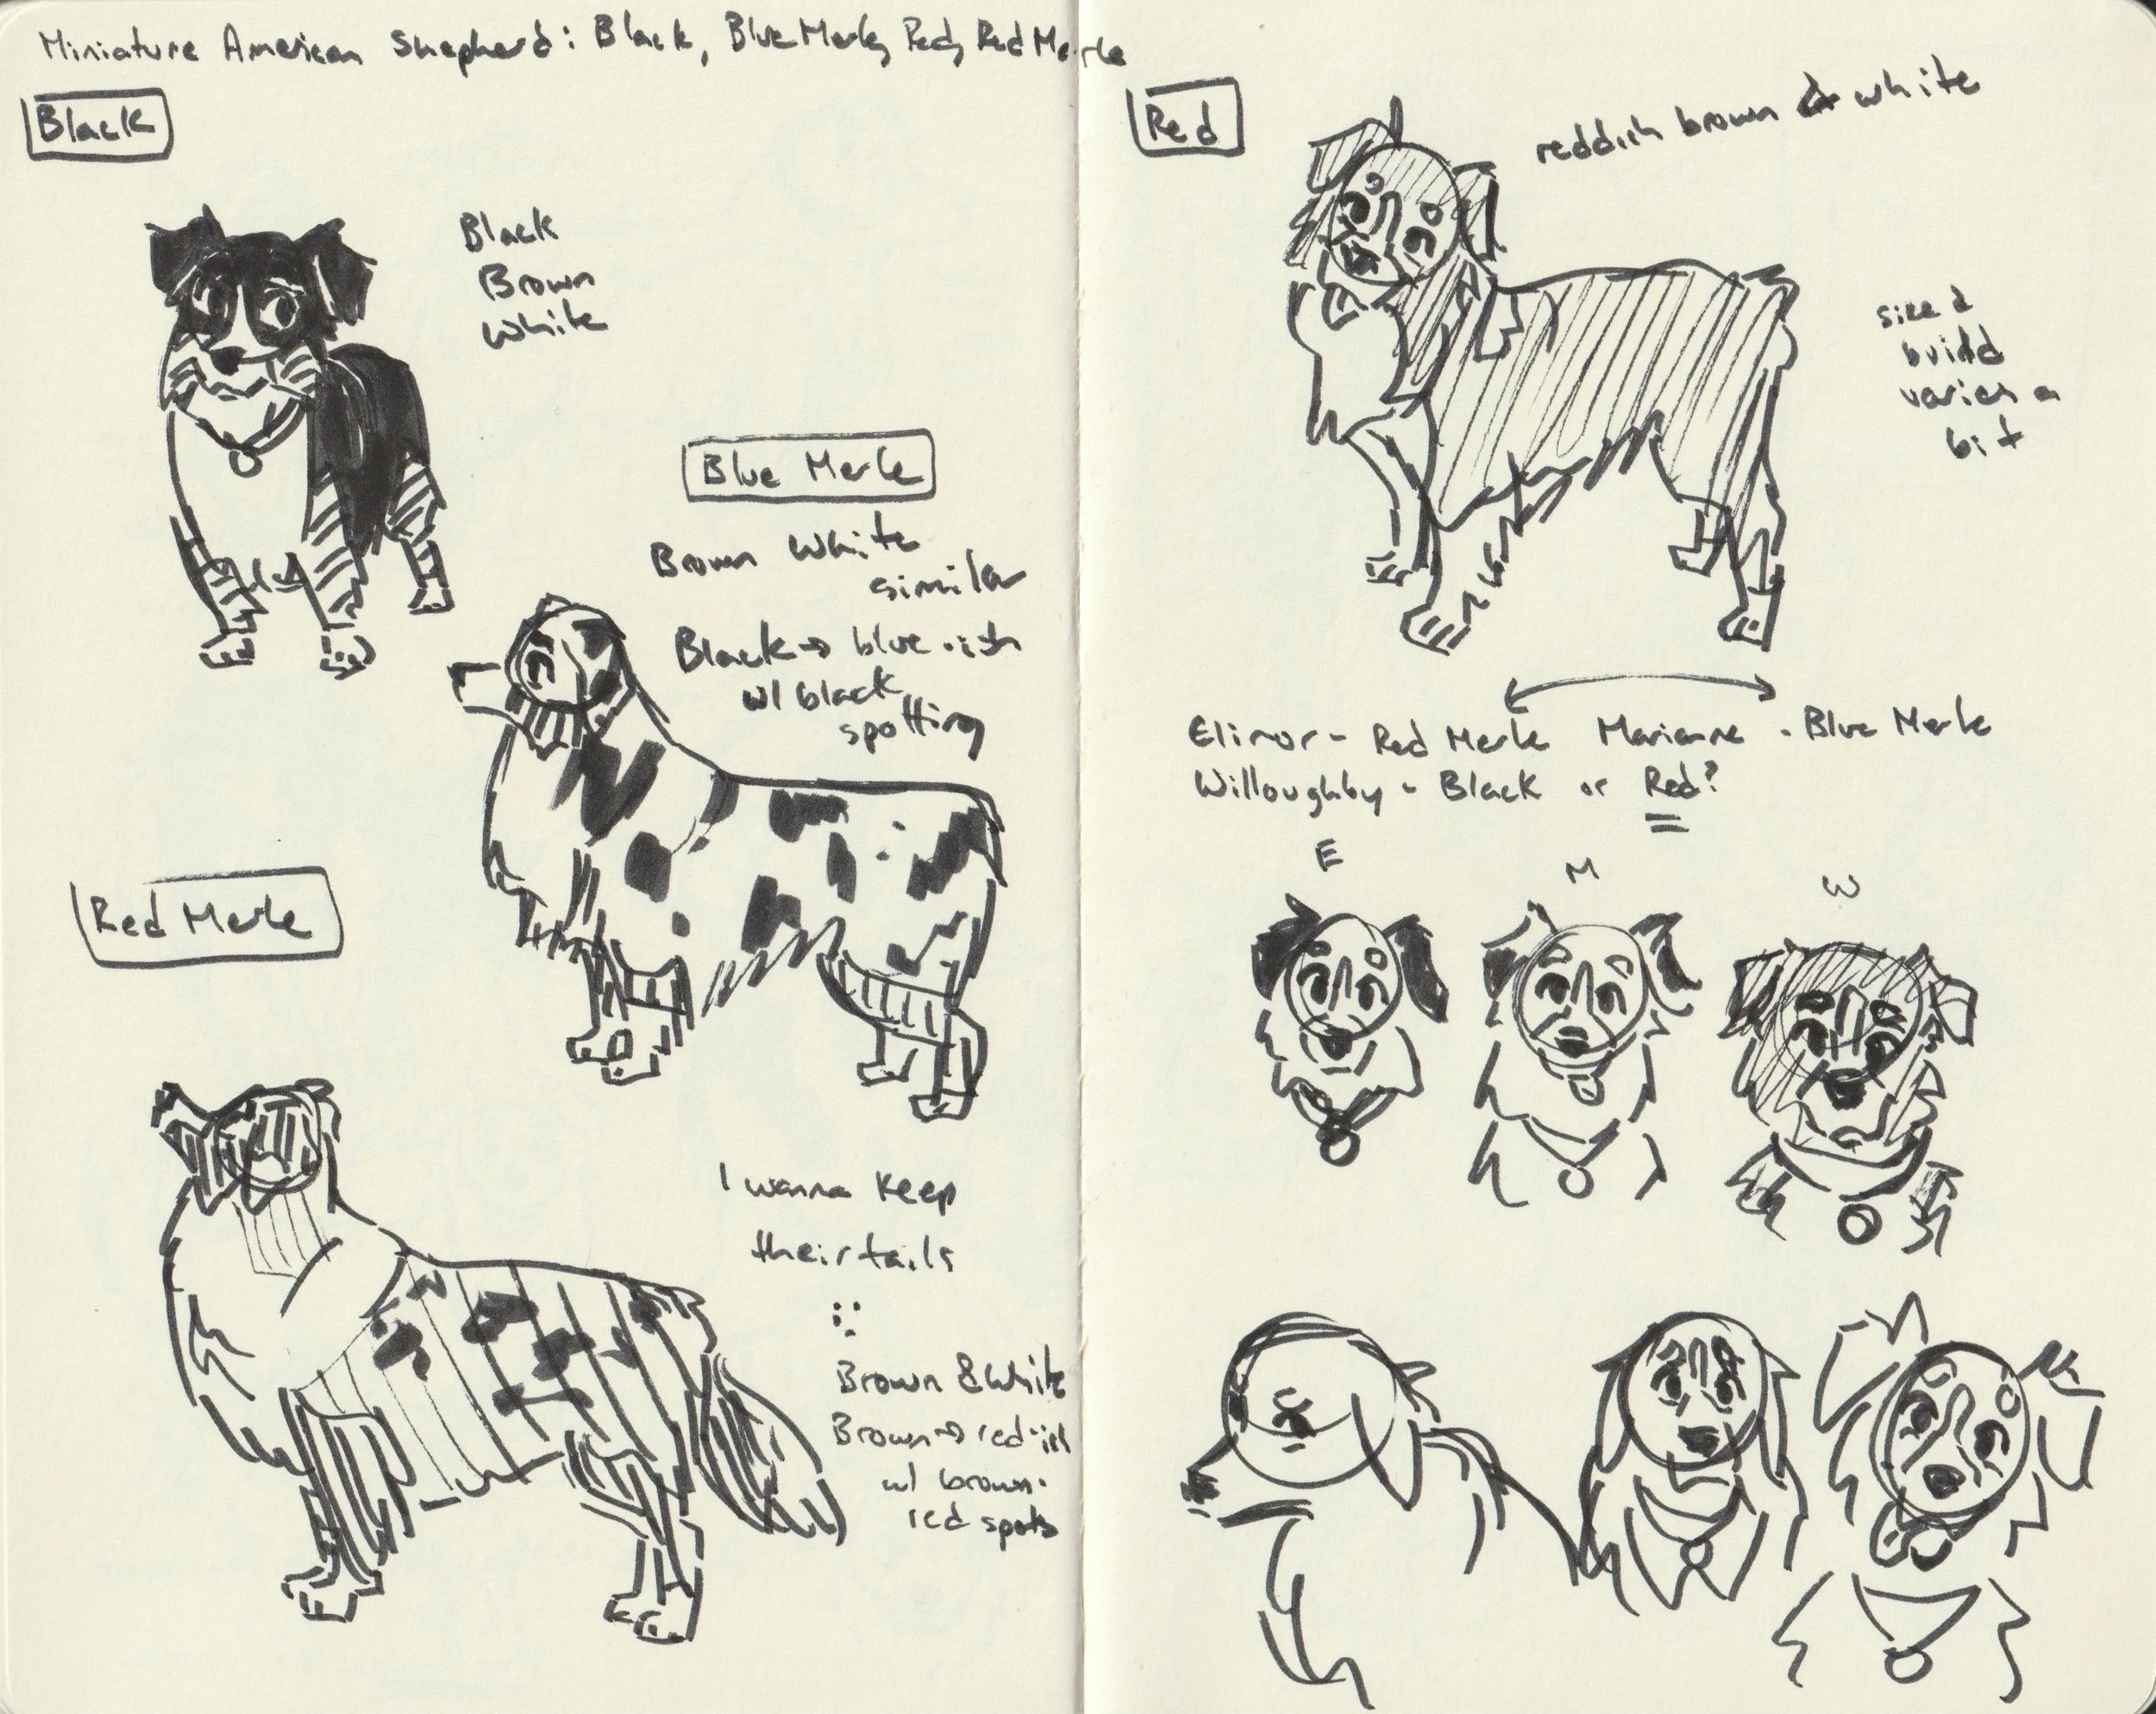 Miniature American Shepherd: Black, Blue Merle, Red, Red Merle
Black
Black
Brown
White
Blue Merle
Brown White
similar
Black → blue-ish
w/ black
spotting
Red Merle
I wanna keep
their tails
Brown & White
Brown → red-ish
w/ brown-
red spots
Red
reddish brown & white
size &
build
varies a
bit
Elinor - Red Merle Marianne - Blue Merle
Willoughby - Black or Red?
E
M
W